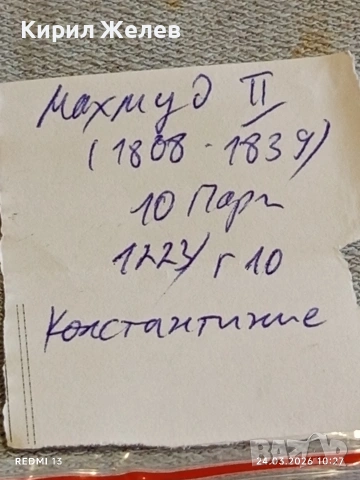 Кирил Желев
Махмуд II
(1808 - 1839)
10 Пари
1223/г 10
Константиние
REDMI 13
24.03.2026 10:27